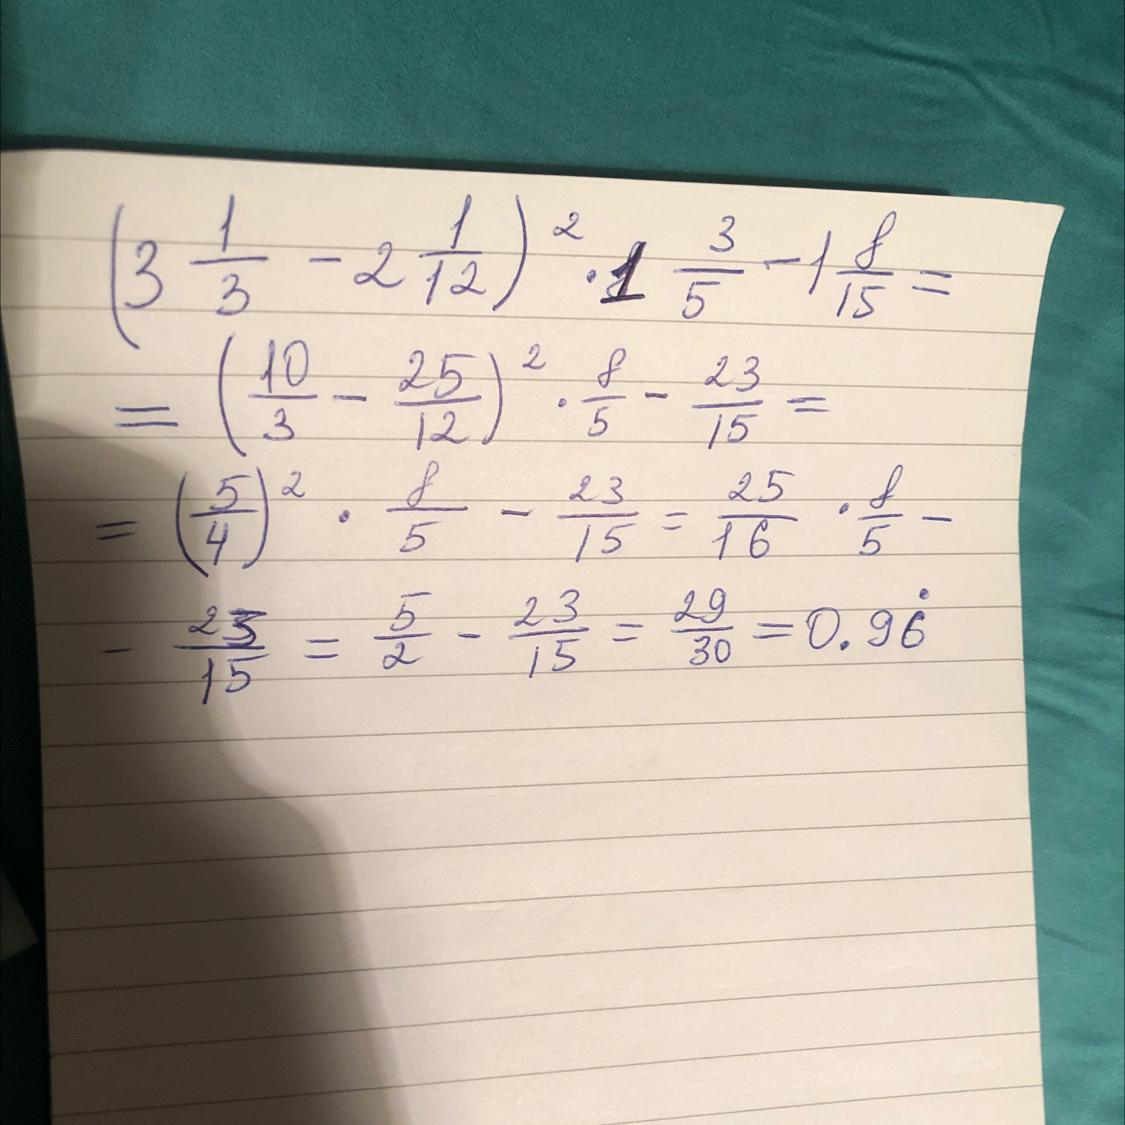 (3 1/3 - 2 1/12)² · 1 3/5 - 1 8/15 =
= (10/3 - 25/12)² · 8/5 - 23/15 =
= (5/4)² · 8/5 - 23/15 = 25/16 · 8/5 -
- 23/15 = 5/2 - 23/15 = 29/30 = 0.96̇